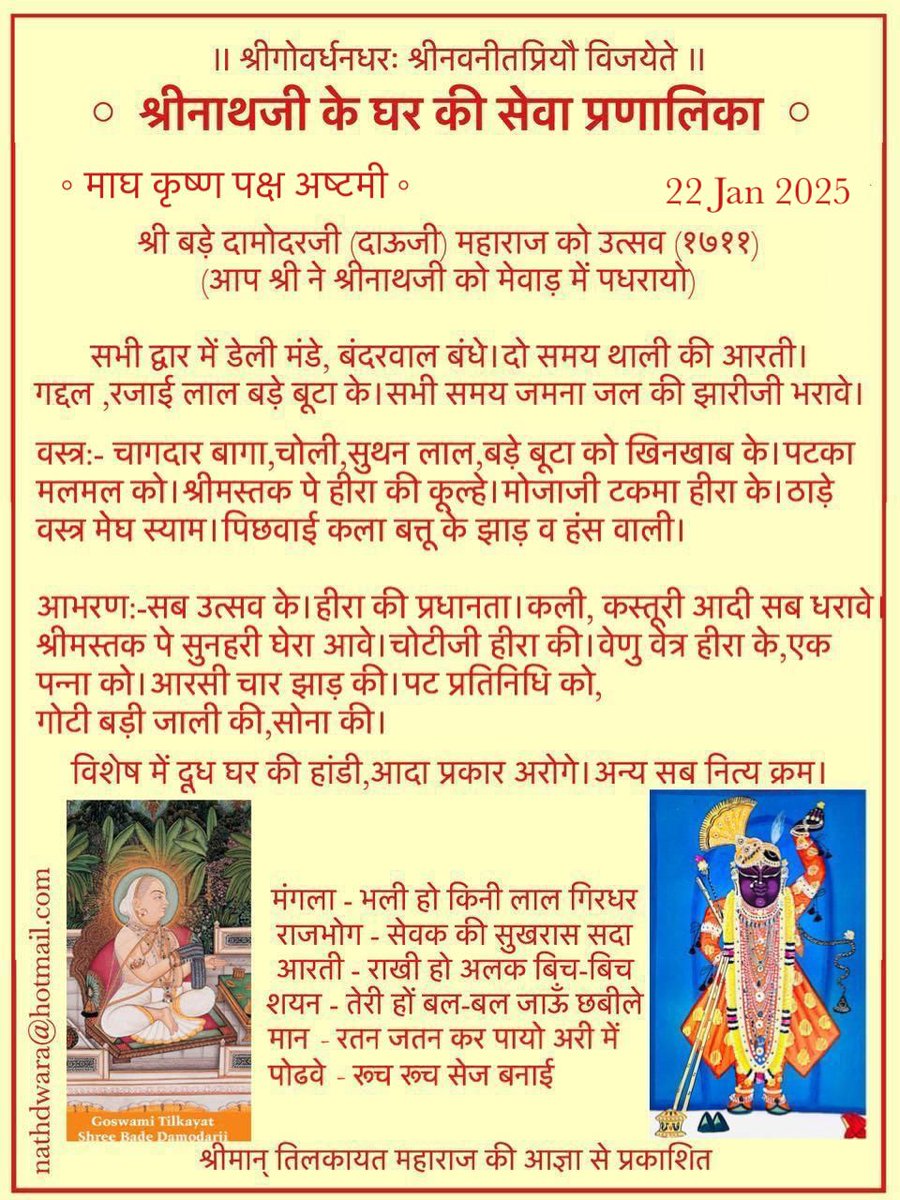 ॥ श्रीगोवर्धनधरः श्रीनवनीतप्रियौ विजयेते ॥
◦ श्रीनाथजी के घर की सेवा प्रणालिका ◦
◦ माघ कृष्ण पक्ष अष्टमी ◦
22 Jan 2025
श्री बड़े दामोदरजी (दाऊजी) महाराज को उत्सव (१७११)
(आप श्री ने श्रीनाथजी को मेवाड़ में पधरायो)
सभी द्वार में डेली मंडे, बंदरवाल बंधे।दो समय थाली की आरती।
गद्दल ,रजाई लाल बड़े बूटा के।सभी समय जमना जल की झारीजी भरावे।
वस्त्र:- चागदार बागा,चोली,सुथन लाल,बड़े बूटा को खिनखाब के।पटका
मलमल को।श्रीमस्तक पे हीरा की कूल्हे।मोजाजी टकमा हीरा के।ठाड़े
वस्त्र मेघ स्याम।पिछवाई कला बत्तू के झाड़ व हंस वाली।
आभरण:-सब उत्सव के।हीरा की प्रधानता।कली, कस्तूरी आदी सब धरावे।
श्रीमस्तक पे सुनहरी घेरा आवे।चोटीजी हीरा की।वेणु वेत्र हीरा के,एक
पन्ना को।आरसी चार झाड़ की।पट प्रतिनिधि को,
गोटी बड़ी जाली की,सोना की।
विशेष में दूध घर की हांडी,आदा प्रकार अरोगे।अन्य सब नित्य क्रम।
मंगला - भली हो किनी लाल गिरधर
राजभोग - सेवक की सुखरास सदा
आरती - राखी हो अलक बिच-बिच
शयन - तेरी हों बल-बल जाऊँ छबीले
मान - रतन जतन कर पायो अरी में
पोढवे - रूच रूच सेज बनाई
nathdwara@hotmail.com
Goswami Tilkayat
Shree Bade Damodarji
श्रीमान् तिलकायत महाराज की आज्ञा से प्रकाशित